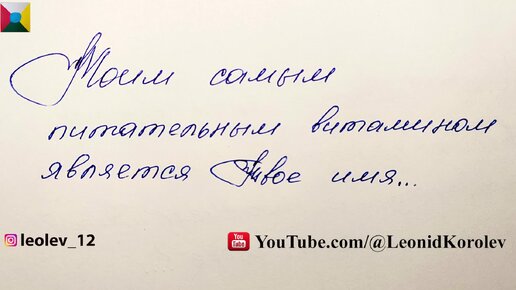 Моим самым
питательным витамином
является Твоё имя...
leolev_12
You Tube
YouTube.com/@LeonidKorolev